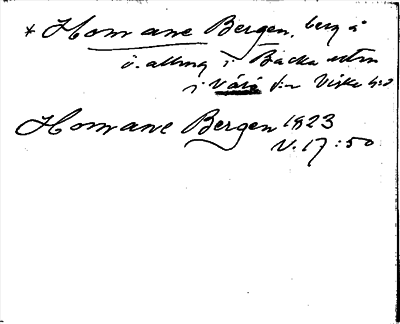 * Homane Bergen, berg å
ö. allmg i Backa utm
i Värö sn Viske hd
Homane Bergen 1823
V. 17:50